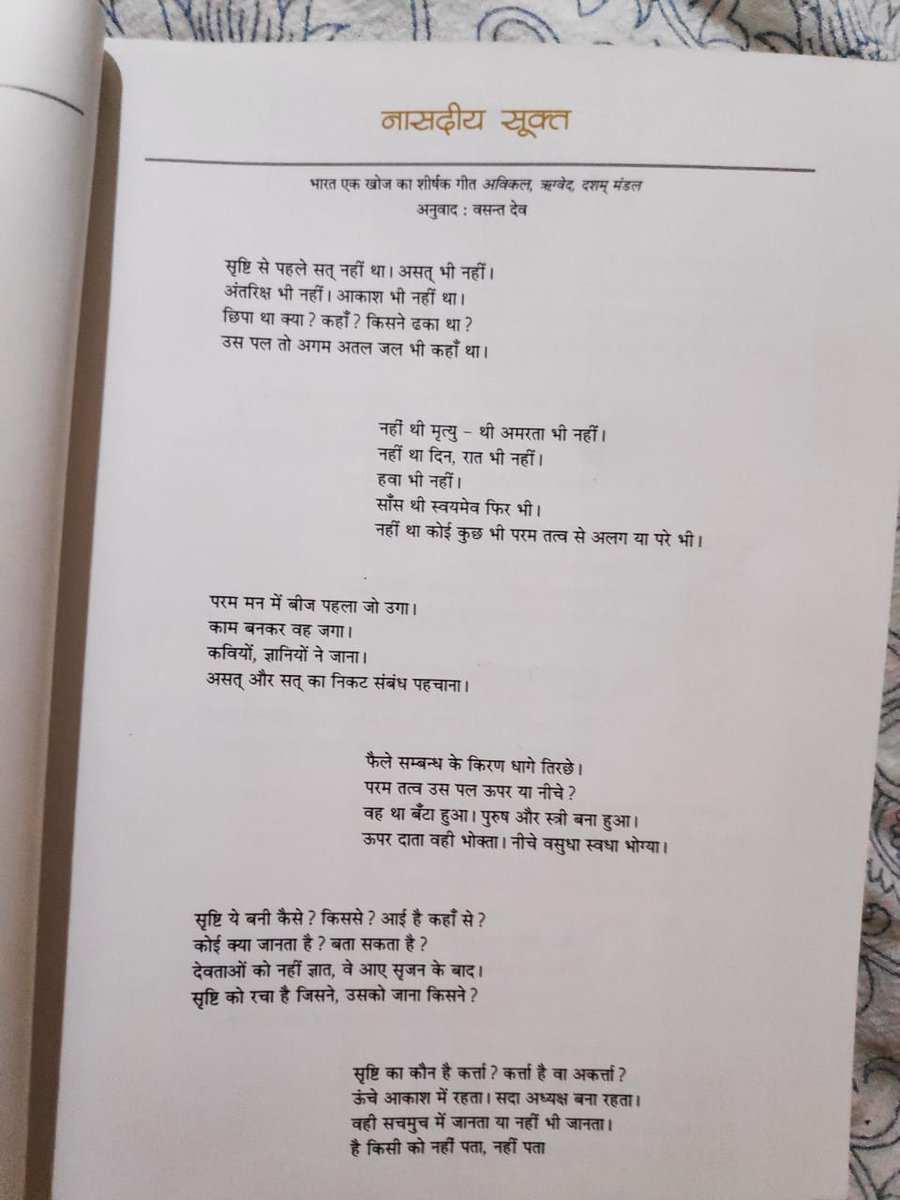 नासदीय सूक्त
भारत एक खोज का शीर्षक गीत अविकल, ऋग्वेद, दशम् मंडल
अनुवाद : वसन्त देव
सृष्टि से पहले सत् नहीं था। असत् भी नहीं।
अंतरिक्ष भी नहीं। आकाश भी नहीं था।
छिपा था क्या? कहाँ? किसने ढका था?
उस पल तो अगम अतल जल भी कहाँ था।
नहीं थी मृत्यु – थी अमरता भी नहीं।
नहीं था दिन, रात भी नहीं।
हवा भी नहीं।
साँस थी स्वयमेव फिर भी।
नहीं था कोई कुछ भी परम तत्व से अलग या परे भी।
परम मन में बीज पहला जो उगा।
काम बनकर वह जगा।
कवियों, ज्ञानियों ने जाना।
असत् और सत् का निकट संबंध पहचाना।
फैले सम्बन्ध के किरण धागे तिरछे।
परम तत्व उस पल ऊपर या नीचे?
वह था बँटा हुआ। पुरुष और स्त्री बना हुआ।
ऊपर दाता वही भोक्ता। नीचे वसुधा स्वधा भोग्या।
सृष्टि ये बनी कैसे? किससे? आई है कहाँ से?
कोई क्या जानता है? बता सकता है?
देवताओं को नहीं ज्ञात, वे आए सृजन के बाद।
सृष्टि को रचा है जिसने, उसको जाना किसने?
सृष्टि का कौन है कर्त्ता? कर्त्ता है वा अकर्त्ता?
ऊंचे आकाश में रहता। सदा अध्यक्ष बना रहता।
वही सचमुच में जानता या नहीं भी जानता।
है किसी को नहीं पता, नहीं पता